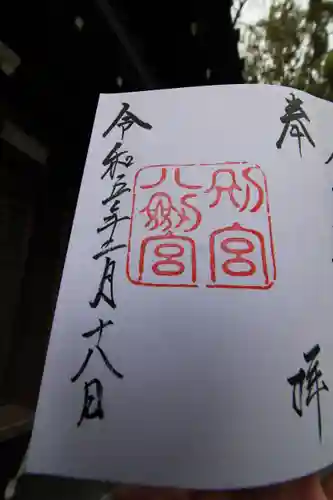 奉拝
別宮
八剱宮
令和五年十二月十八日